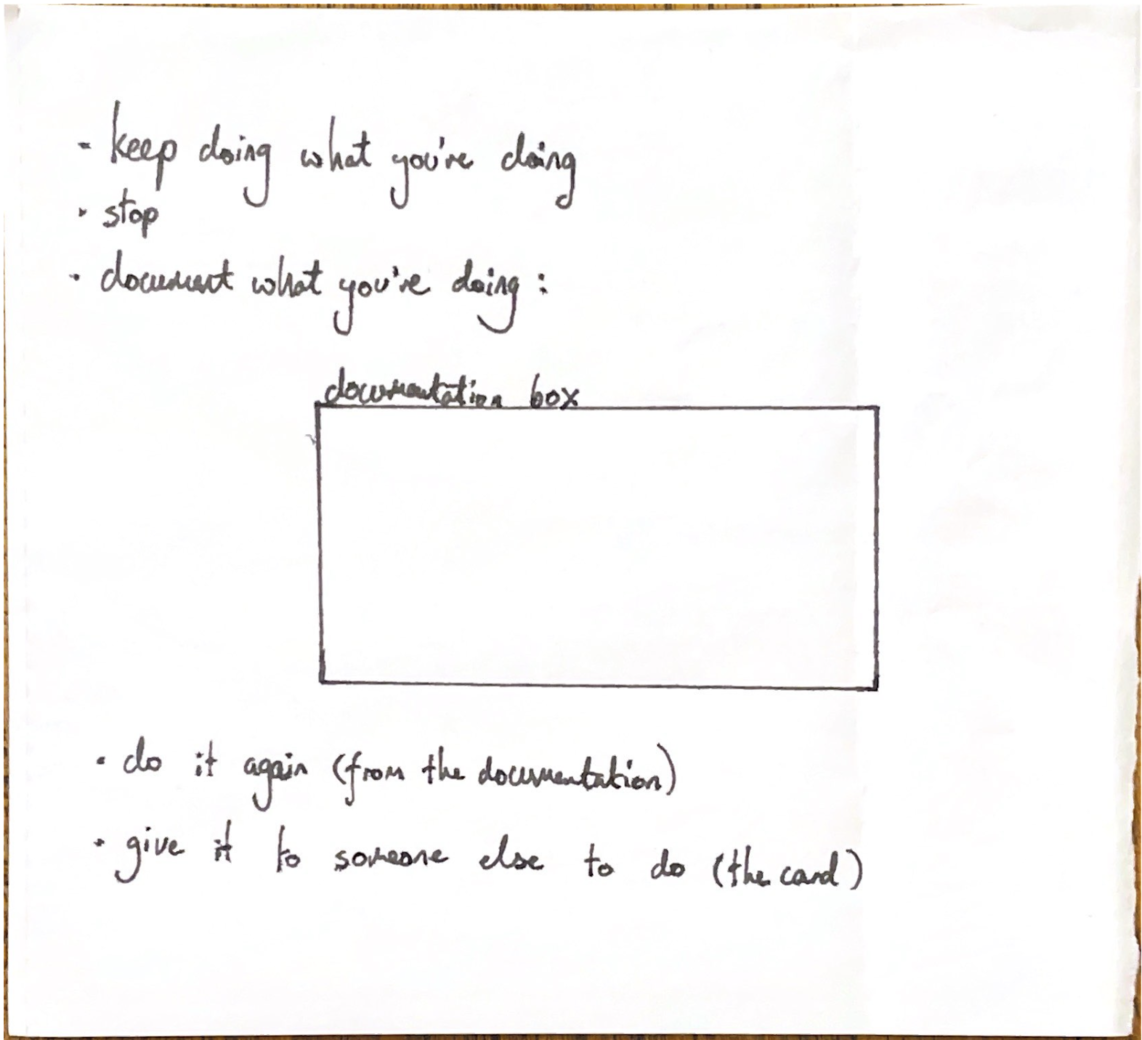 - keep doing what you're doing
· stop
· document what you're doing :
documentation box
· do it again (from the documentation)
· give it to someone else to do (the card)